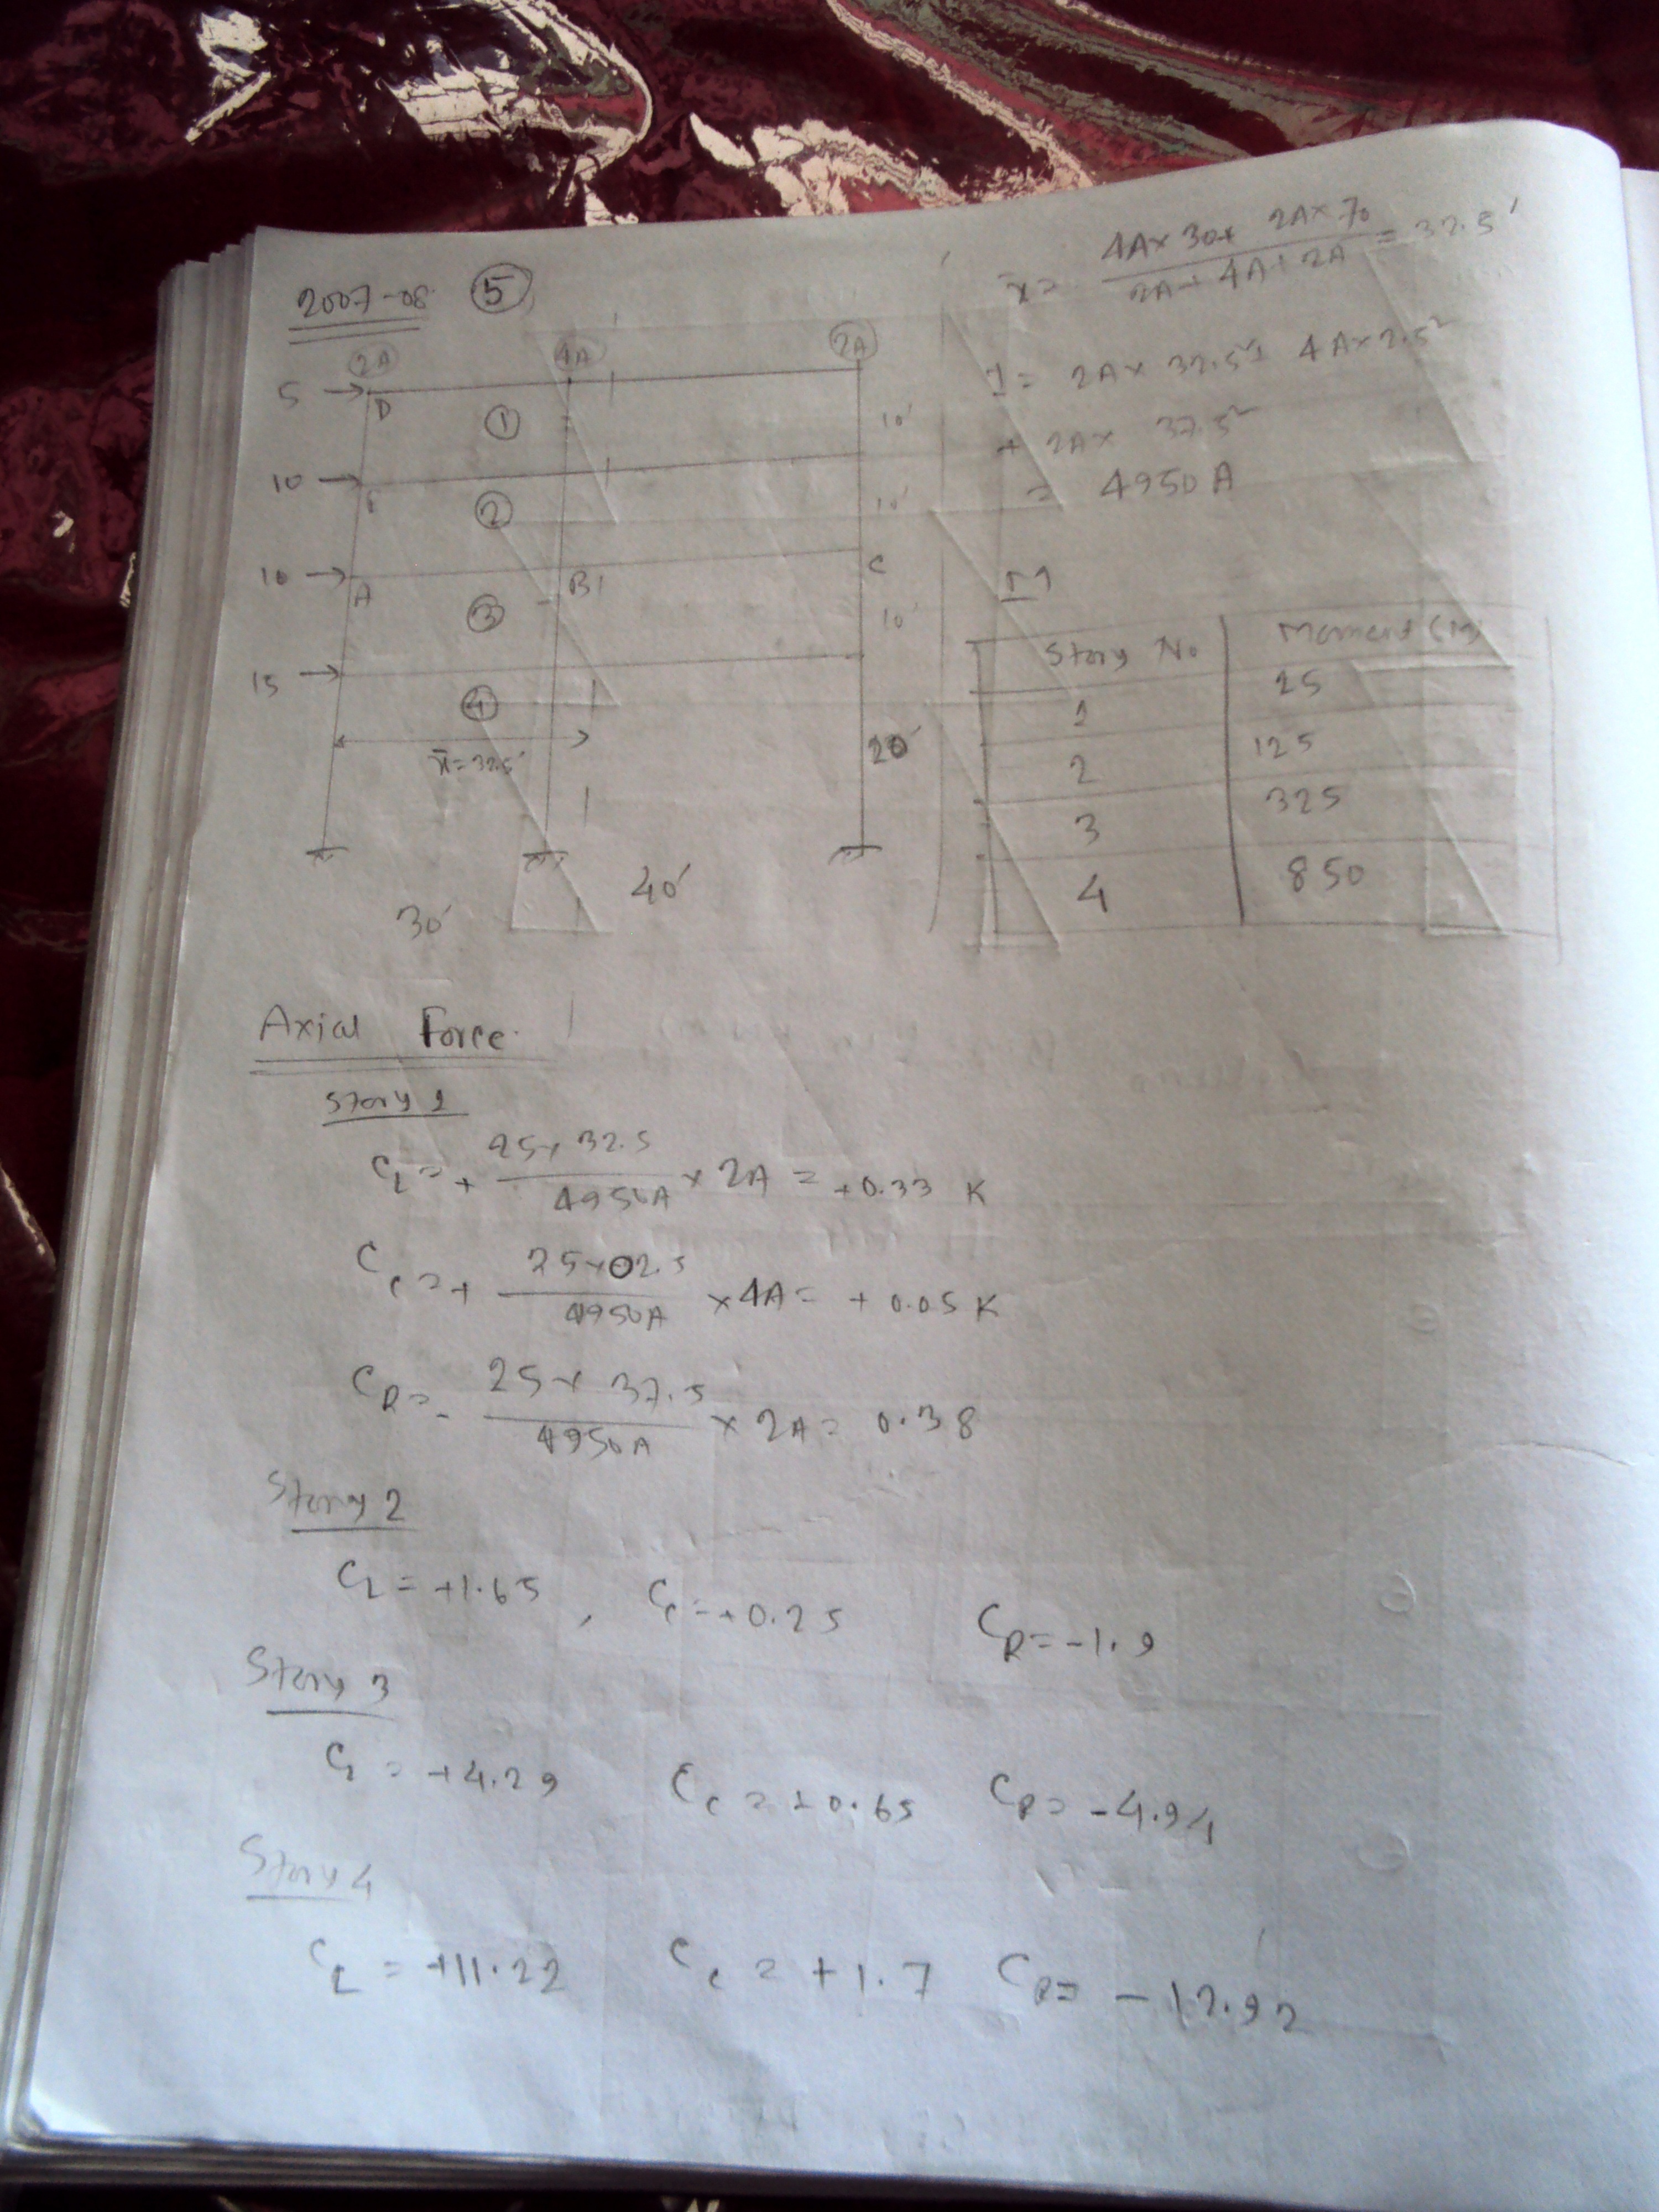 2007-08 5
x̄ = 4A×30+ 2A×70 / 2A+4A+2A = 32.5'
2A 4A 2A
I = 2A× 32.5²+ 4A×2.5²
+ 2A× 37.5²
= 4950A
5 → D 1 10'
10 → 2 10'
10 → A B C 3 10'
15 → 4
x̄=32.5' 20'
30' 40'
Story No Moment (M)
1 25
2 125
3 325
4 850
Axial Force.
Story 1
C_L = + 25×32.5 / 4950A × 2A = +0.33 K
C_c = + 25×02.5 / 4950A × 4A = + 0.05 K
C_R = - 25× 37.5 / 4950A × 2A = 0.38
Story 2
C_L = +1.65 , C_c = +0.25 C_R = -1.9
Story 3
C_L = +4.29 C_c = +0.65 C_R = -4.94
Story 4
C_L = +11.22 C_c = +1.7 C_R = -12.92